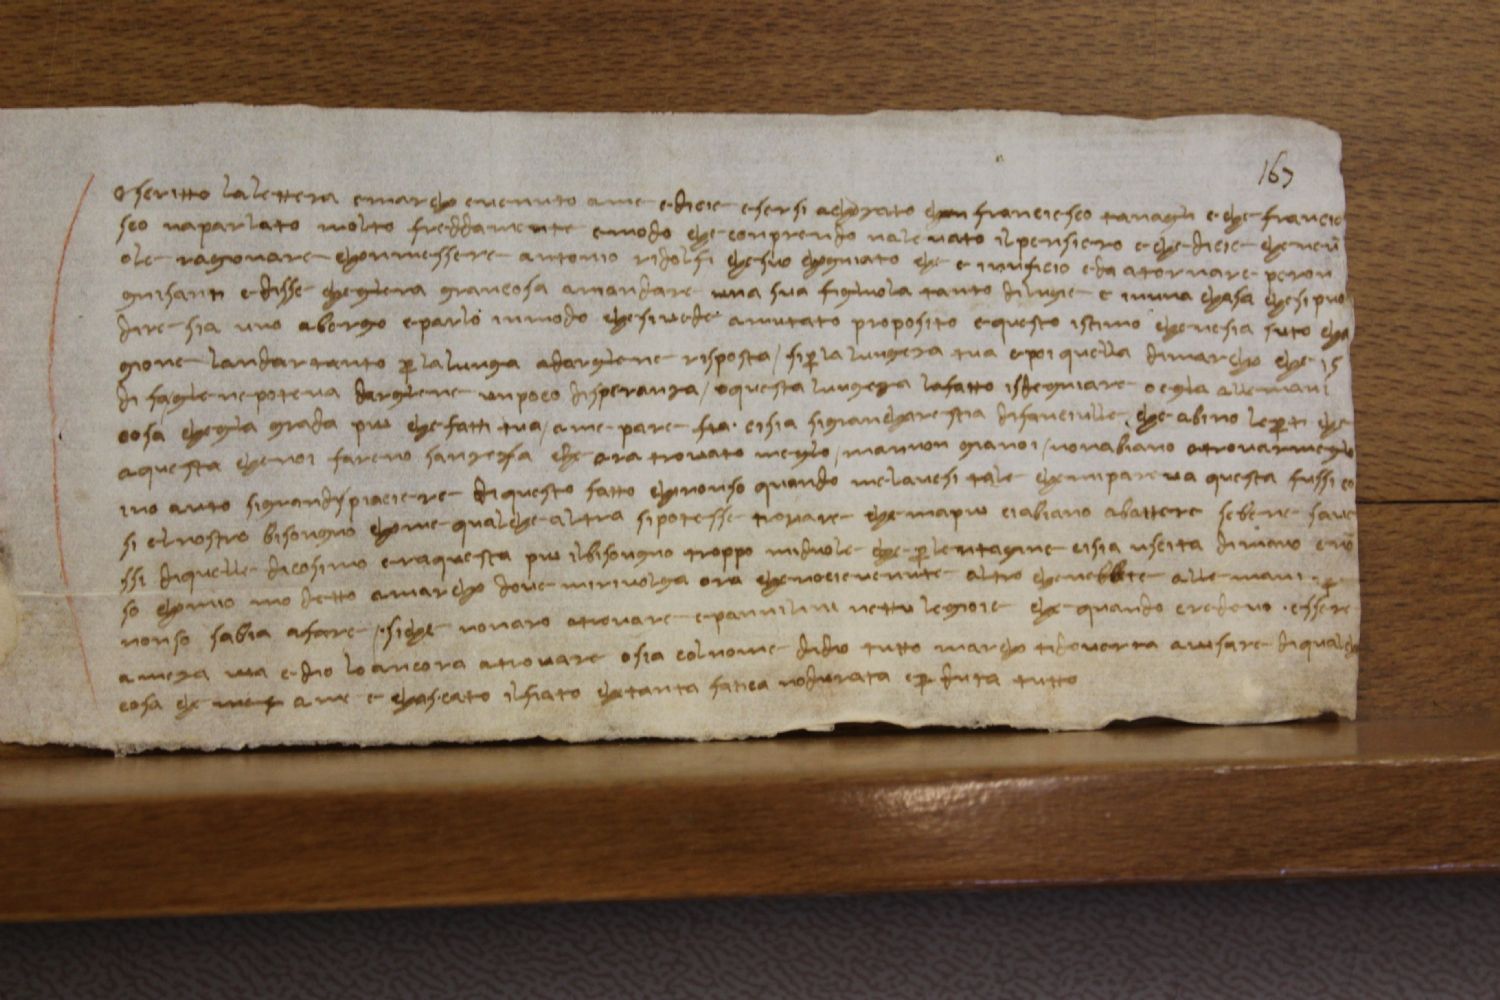 167
O scritto la lettera e marcho e venuto a me e dicie esersi achozato chon franciescho tanagli e che francie
sco na parlato molto freddamente e modo che conprendo nale vato il pensiero e che dicie che ne vu
ole ragionare chon messere antonio ridolfi che suo chogniato che e in uficio e da a tornare per ongni
gnisanti e disse che gliera gran cosa a mandare una sua figliuola tanto di lugie e in una chasa che si puo
dire sia uno abergo e parlo in modo che si vede a mutato proposito e questo istimo che ne sia suto cha
gione landar tanto p la lunga a dargliene risposta / si p la lungeza tua e poi quella di marcho che
di fagliene poteva dargliene un poco di speranza / e questa lungeza la fatto isdegniare o e gla alle mani
cosa che gla grada piu che fatti tua / a me pare sia ci sia si gran charestia di fanciulle che abino le parti che
a questa che noi fareno sanzessa che ora trovato meglo / ma non gia noi / non abiano a trovar meglo
ino auto si gran dispiaciere di questo fatto che non so quando me lavesi tale che mi pareva questa fussi co
si el nostro bisongno chome qualche altra si potesse trovare che ma piu ci abiano abattere se bene save
ssi di quelle di cosimo era questa piu il bisongno troppo mi duole che p lentagine ci sia uscita di mano e no
so chom io mo detto a marcho dove mi rivolga ora che no cie venute altro che nebbte alle mani p
non so sabia a fare / siche non aro a trovare e panni lini nettu le gioie che quando credevo essere
a meza via e dio lo ancora a trovare o sia col nome di dio tutto marcho ti dovera avisare di qualche
cosa che a me e chascato il fiato che tanta faticha no durata e p duta tutto